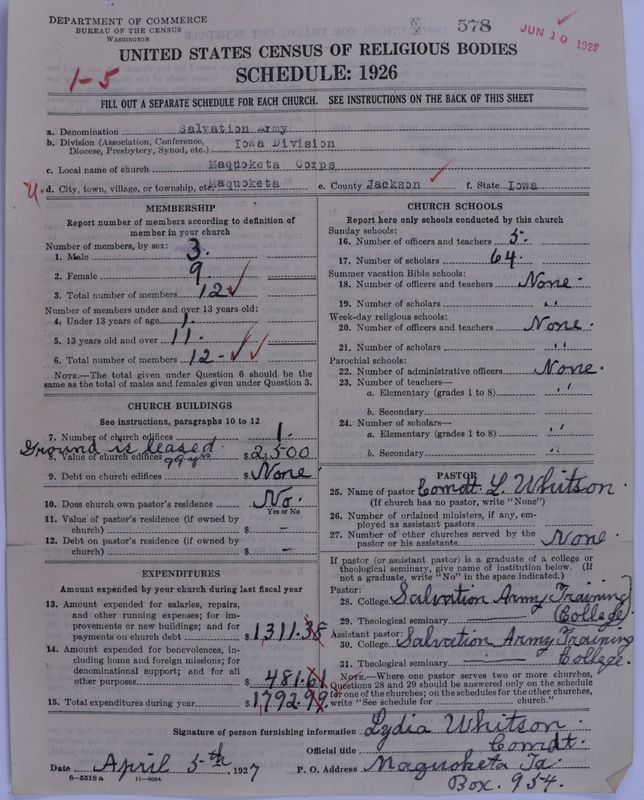 DEPARTMENT OF COMMERCE
BUREAU OF THE CENSUS
WASHINGTON
578
JUN 10 1927
UNITED STATES CENSUS OF RELIGIOUS BODIES
SCHEDULE: 1926
1-5
FILL OUT A SEPARATE SCHEDULE FOR EACH CHURCH. SEE INSTRUCTIONS ON THE BACK OF THIS SHEET
a. Denomination Salvation Army
b. Division (Association, Conference, Diocese, Presbytery, Synod, etc.) Iowa Division
c. Local name of church Maquoketa Corps
d. City, town, village, or township, etc. Maquoketa e. County Jackson f. State Iowa
MEMBERSHIP
Report number of members according to definition of
member in your church
Number of members, by sex:
1. Male 3.
2. Female 9.
3. Total number of members 12
Number of members under and over 13 years old:
4. Under 13 years of age 1.
5. 13 years old and over 11.
6. Total number of members 12-
NOTE.—The total given under Question 6 should be
same as the total of males and females given under Question 3.
CHURCH BUILDINGS
See instructions, paragraphs 10 to 12
7. Number of church edifices 1.
Ground is leased
99 yrs
8. Value of church edifices $ 2,500
9. Debt on church edifices $ None
10. Does church own pastor's residence No.
Yes or No
11. Value of pastor's residence (if owned by
church) $ -
12. Debt on pastor's residence (if owned by
church) $ -
EXPENDITURES
Amount expended by your church during last fiscal year
13. Amount expended for salaries, repairs,
and other running expenses; for im-
provements or new buildings; and for
payments on church debt $ 1311.38
14. Amount expended for benevolences, in-
cluding home and foreign missions; for
denominational support; and for all
other purposes $ 481.61
15. Total expenditures during year $ 1792.99
CHURCH SCHOOLS
Report here only schools conducted by this church
Sunday schools:
16. Number of officers and teachers 5.
17. Number of scholars 64.
Summer vacation Bible schools:
18. Number of officers and teachers None.
19. Number of scholars "
Week-day religious schools:
20. Number of officers and teachers None.
21. Number of scholars "
Parochial schools:
22. Number of administrative officers None.
23. Number of teachers—
a. Elementary (grades 1 to 8) "
b. Secondary
24. Number of scholars—
a. Elementary (grades 1 to 8) "
b. Secondary "
PASTOR
25. Name of pastor Comdt. L. Whitson.
(If church has no pastor, write "None")
26. Number of ordained ministers, if any, em-
ployed as assistant pastors
27. Number of other churches served by the
pastor or his assistants None.
If pastor (or assistant pastor) is a graduate of a college or
theological seminary, give name of institution below. (If
not a graduate, write "No" in the space indicated.)
Pastor:
28. College Salvation Army Training
29. Theological seminary College.
Assistant pastor:
30. College Salvation Army Training
31. Theological seminary College.
NOTE.—Where one pastor serves two or more churches,
Questions 28 and 29 should be answered only on the schedule
for one of the churches; on the schedules for the other churches,
write "See schedule for church."
Signature of person furnishing information Lydia Whitson.
Official title Comdt.
Date April 5th, 1927 P. O. Address Maquoketa Ia.
Box. 954.
8-5518 a 11-9064